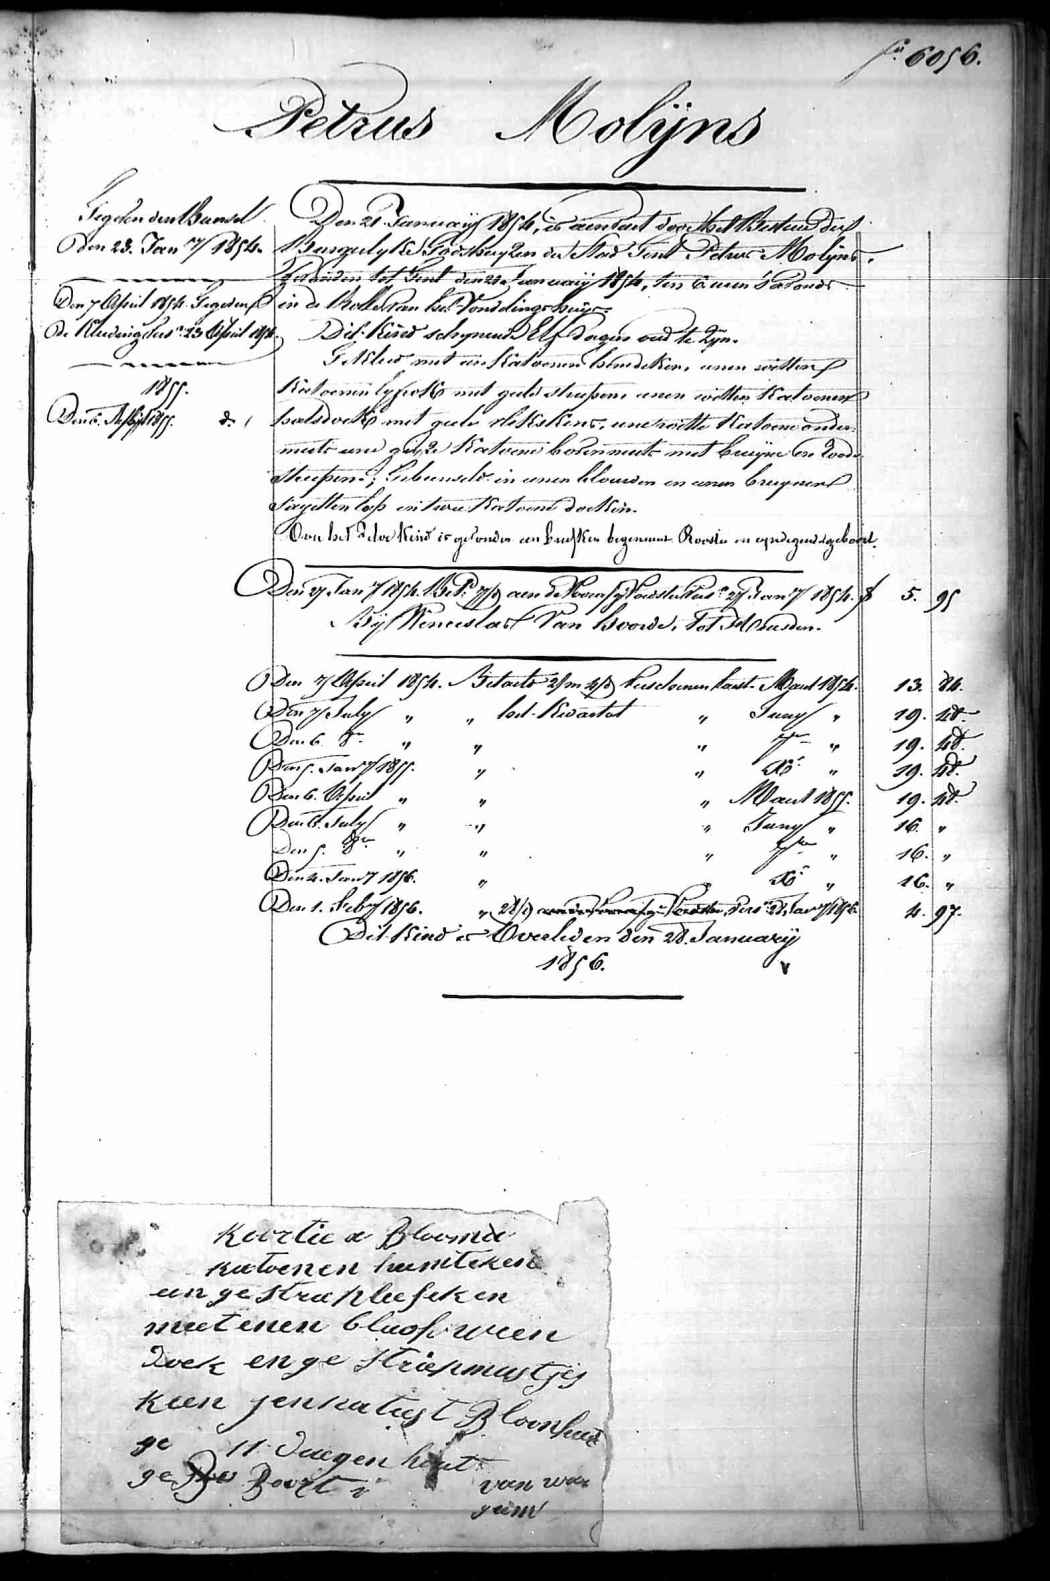 fº 6056.
Petrus Molijns
Gegeven den Bunsel
Den 23. Jany 1854.
Den 7 April 1854. Gegeven
de Kleeding Pers. 23 April 1854.
1855.
Den 6. 1855. d.
Den 21 January 1854, is aenveerd door het Bestuer der
Burgerlyke Godshuyzen der Stad Gent Petrus Molijns.
gevonden tot Gent den 21 January 1854, ten 6 uren 's avonds
in de Rolle van het Vondelinghuys.
Dit Kind schynende Elf dagen oud te zyn.
Gekleed met een katoenen hemdeken, eenen witten
katoenen lyfrok met geele streepen, eenen witten katoenen
halsdoek met geele plekskens, eene witte katoene onder-
muts eene gryze katoene bovenmuts met bruyne en roode
streepen; Gebunseld in eenen blouwen en eenen bruynen
sayetten lap en twee katoene doeken.
Over het zelve kind is gevonden een briefken beginnende Roosta en eyndigende geboort.
Den 27 Jany 1854. Bet. aen de Voorzy Voedster Pers. 27 Jany 1854. f 5. 95
By Wenceslas Van hoorde, tot Heusden.
Den 7 April 1854. Betaelt 2/m 4/d Verschenen laest Maert 1854. 13. 84.
Den 7 July " " het Kwartael " Juny " 19. 48.
Den 6. 8r " " " 7br " 19. 48.
Den 5. Jany 1855. " " Xr " 19. 48.
Den 6. April " " " Maert 1855. 19. 48.
Den 6. July " " " Juny " 16. "
Den 5. 8r " " " 7br " 16. "
Den 4. Jany 1856. " " Xr " 16. "
Den 1. Feby 1856. " 28/d Pers. 28 Jany 1856. 4. 97.
Dit Kind is Overleden den 28. January
1856.
katoenen hemteken
en gestraept
met enen
doek en ge strapmustjes
ge 11 daegen
ge Boort
van